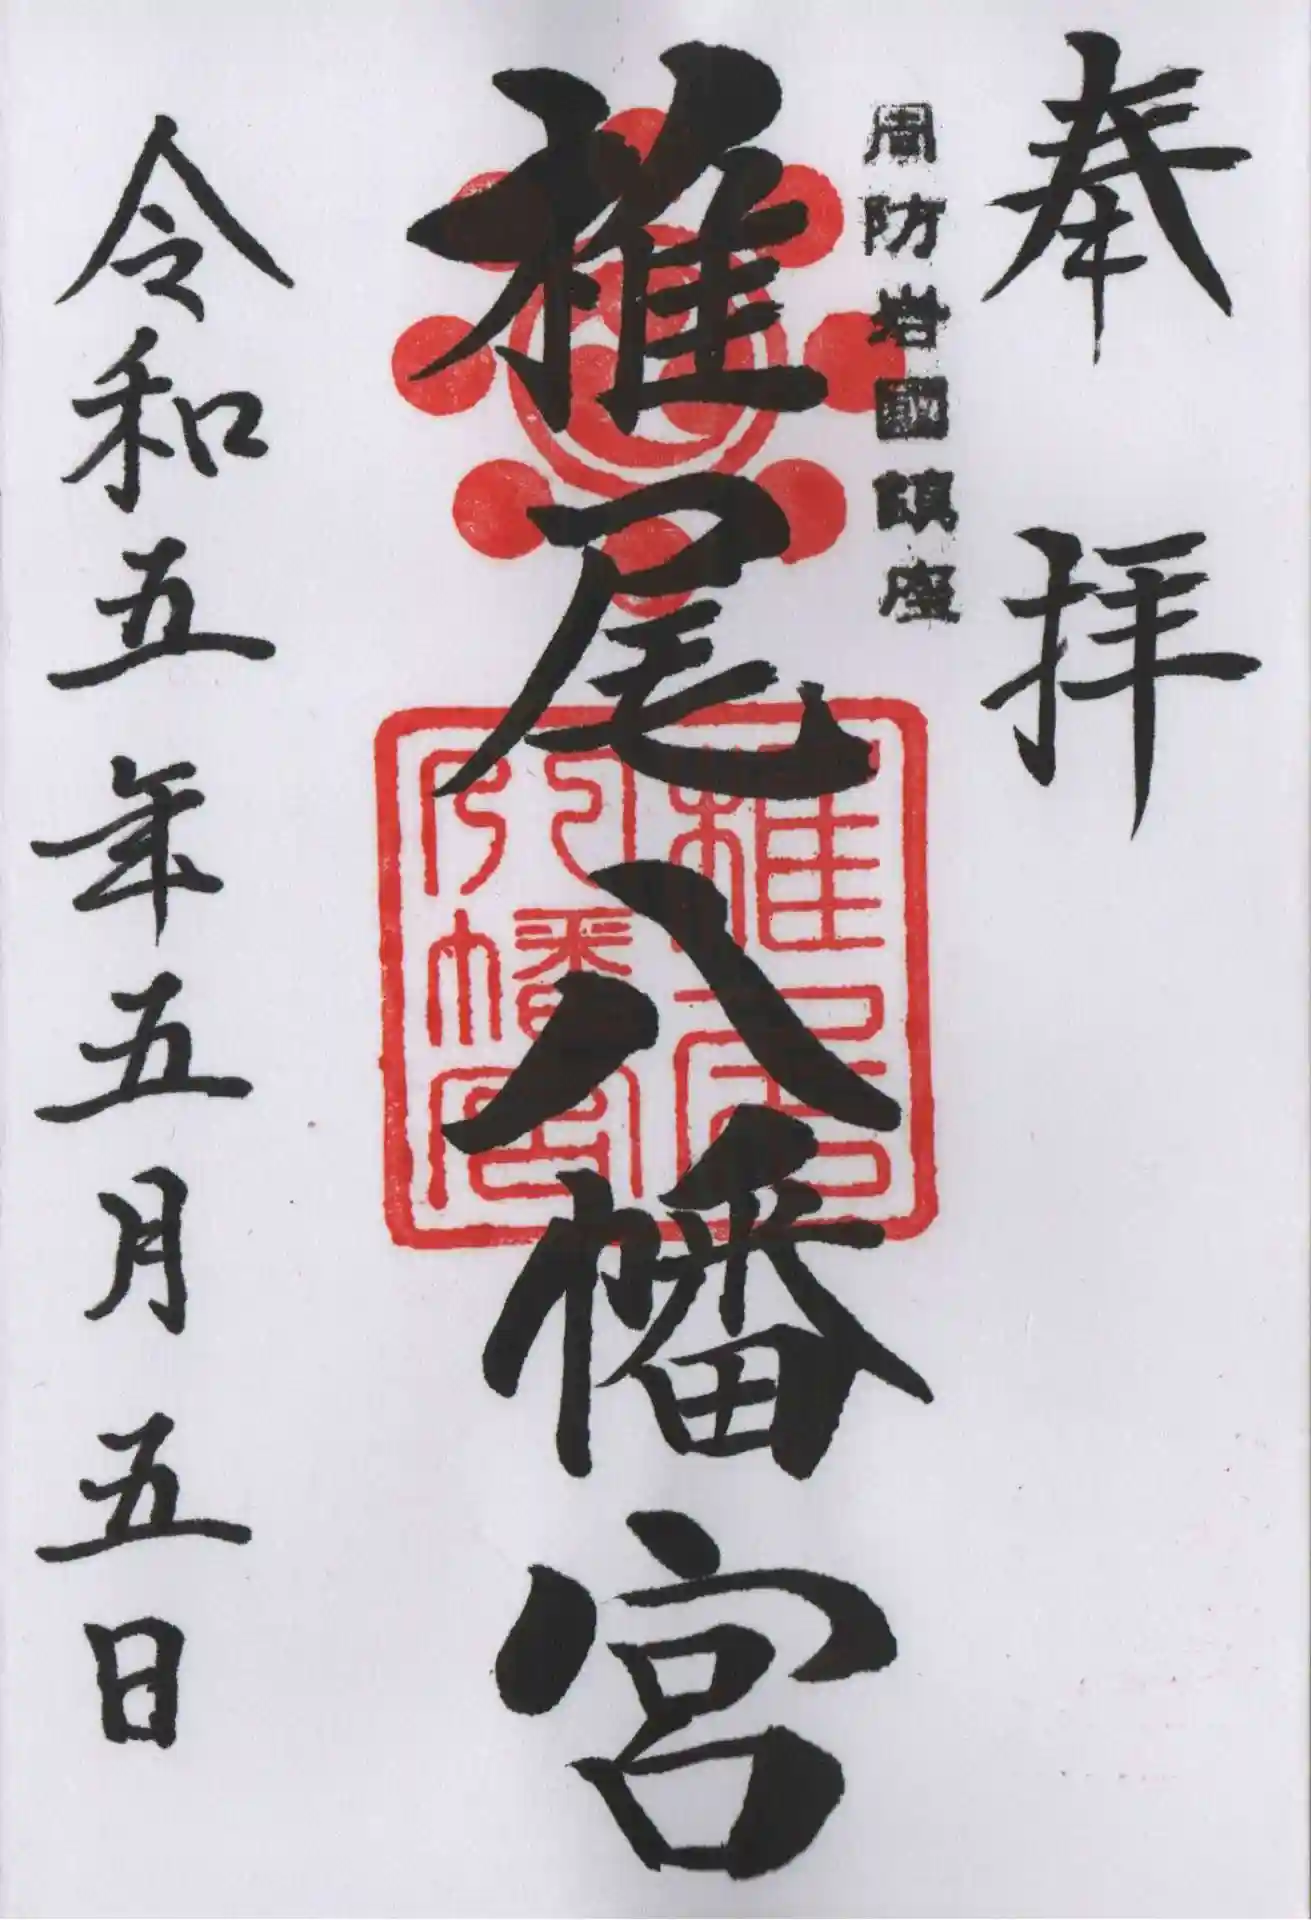 奉拝
周防岩國鎮座
椎尾八幡宮
椎尾
八幡宮
令和五年五月五日